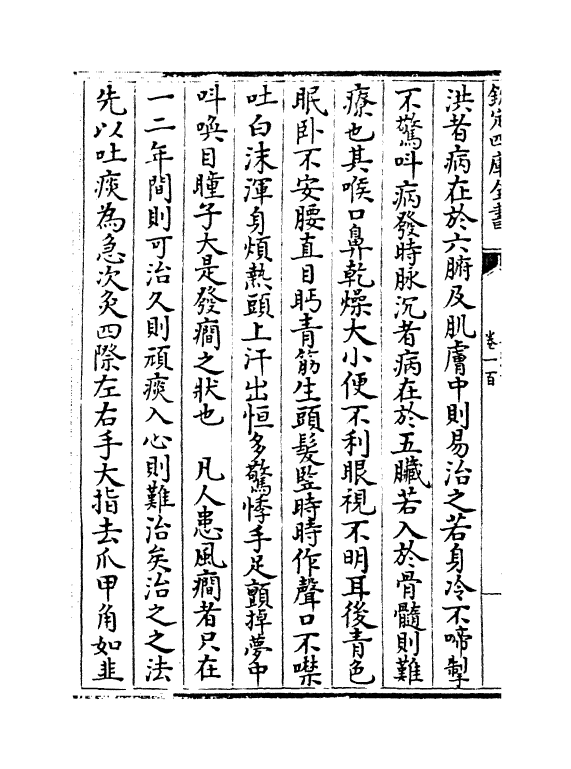 欽定四庫全書
卷一百
洪者病在於六腑及肌膚中則易治之若身冷不啼掣
不驚呌病發時脉沉者病在於五臟若入於骨髓則難
療也其喉口鼻乾燥大小便不利眼視不明耳後青色
眠卧不安腰直目眄青筋生頭髮豎時時作聲口不噤
吐白沫渾身煩熱頭上汗出恒多驚悸手足顫掉夢中
呌喚目瞳子大是發癎之狀也　凡人患風癎者只在
一二年間則可治久則頑痰入心則難治矣治之之法
先以吐痰為急次灸四際左右手大指去爪甲角如韭